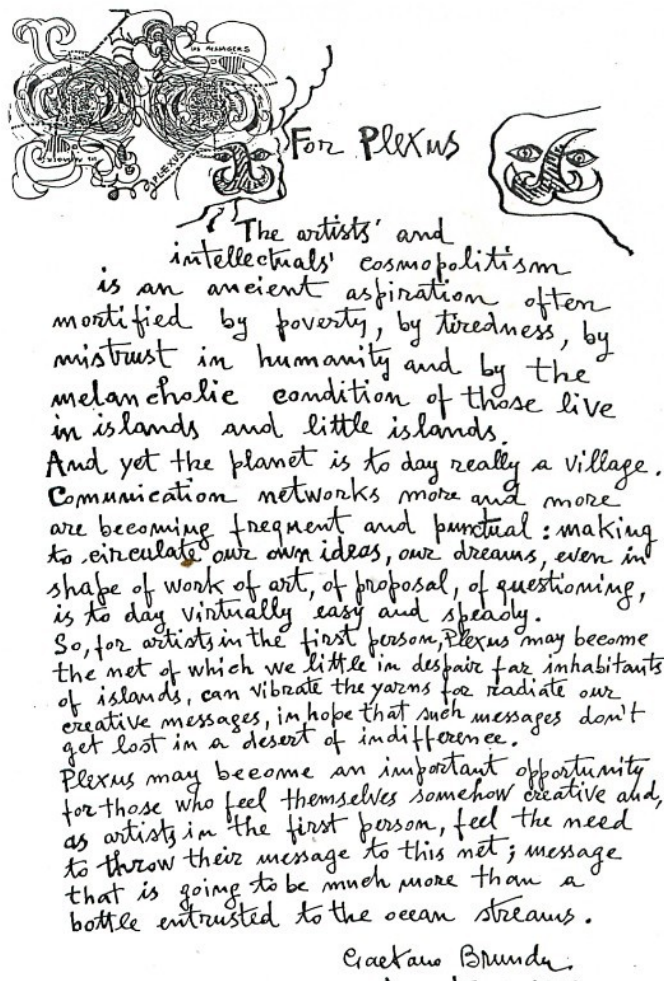 PLEXUS
For Plexus
The artists' and
intellectuals' cosmopolitism
is an ancient aspiration often
mortified by poverty, by tiredness, by
mistrust in humanity and by the
melancholic condition of those live
in islands and little islands.
And yet the planet is to day really a village.
Comunication networks more and more
are becoming frequent and punctual: making
to circulate our own ideas, our dreams, even in
shape of work of art, of proposal, of questioning,
is to day virtually easy and speady.
So, for artists in the first person, Plexus may become
the net of which we little in despair far inhabitants
of islands, can vibrate the yarns for radiate our
creative messages, in hope that such messages don't
get lost in a desert of indifference.
Plexus may become an important opportunity
for those who feel themselves somehow creative and,
as artists in the first person, feel the need
to throw their message to this net; message
that is going to be much more than a
bottle entrusted to the ocean streams.
Gaetano Brundu